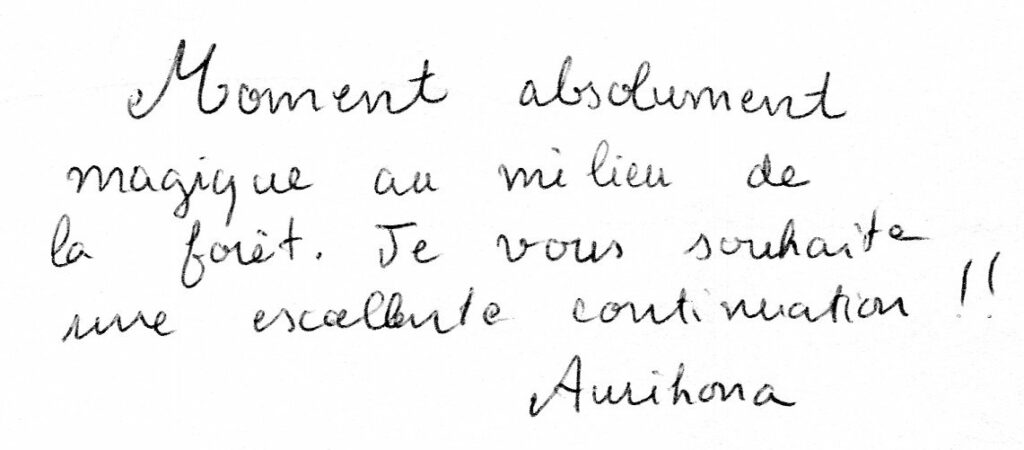 Moment absolument
magique au milieu de
la forêt. Je vous souhaite
une excellente continuation !!
Aurihona